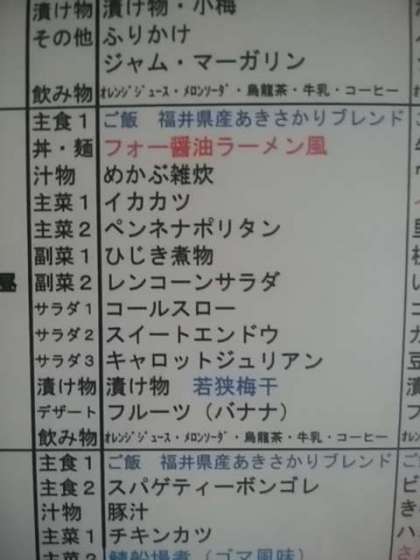 漬け物 漬け物・小梅
その他 ふりかけ
ジャム・マーガリン
飲み物 オレンジジュース・メロンソーダ・烏龍茶・牛乳・コーヒー
主食1 ご飯 福井県産あきさかりブレンド
丼・麺 フォー醤油ラーメン風
汁物 めかぶ雑炊
主菜1 イカカツ
主菜2 ペンネナポリタン
副菜1 ひじき煮物
昼 副菜2 レンコーンサラダ
サラダ1 コールスロー
サラダ2 スイートエンドウ
サラダ3 キャロットジュリアン
漬け物 漬け物 若狭梅干
デザート フルーツ（バナナ）
飲み物 オレンジジュース・メロンソーダ・烏龍茶・牛乳・コーヒー
主食1 ご飯 福井県産あきさかりブレンド
主食2 スパゲティーボンゴレ
汁物 豚汁
主菜1 チキンカツ
主菜2 鯖船場煮（ゴマ風味）